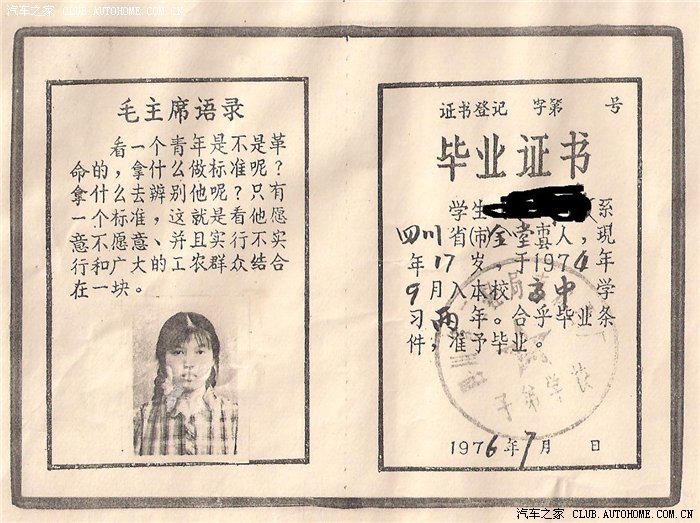 汽车之家 CLUB.AUTOHOME.COM.CN
毛主席语录
看一个青年是不是革
命的，拿什么做标准呢？
拿什么去辨别他呢？只有
一个标准，这就是看他愿
意不愿意、并且实行不实
行和广大的工农群众结合
在一块。
证书登记 字第 号
毕业证书
学生 系
四川省(市)金堂市县人，现
年17岁，于1974年
9月入本校高中学
习两年。合乎毕业条
件，准予毕业。
子弟学校
1976年7月 日
汽车之家 CLUB.AUTOHOME.COM.CN